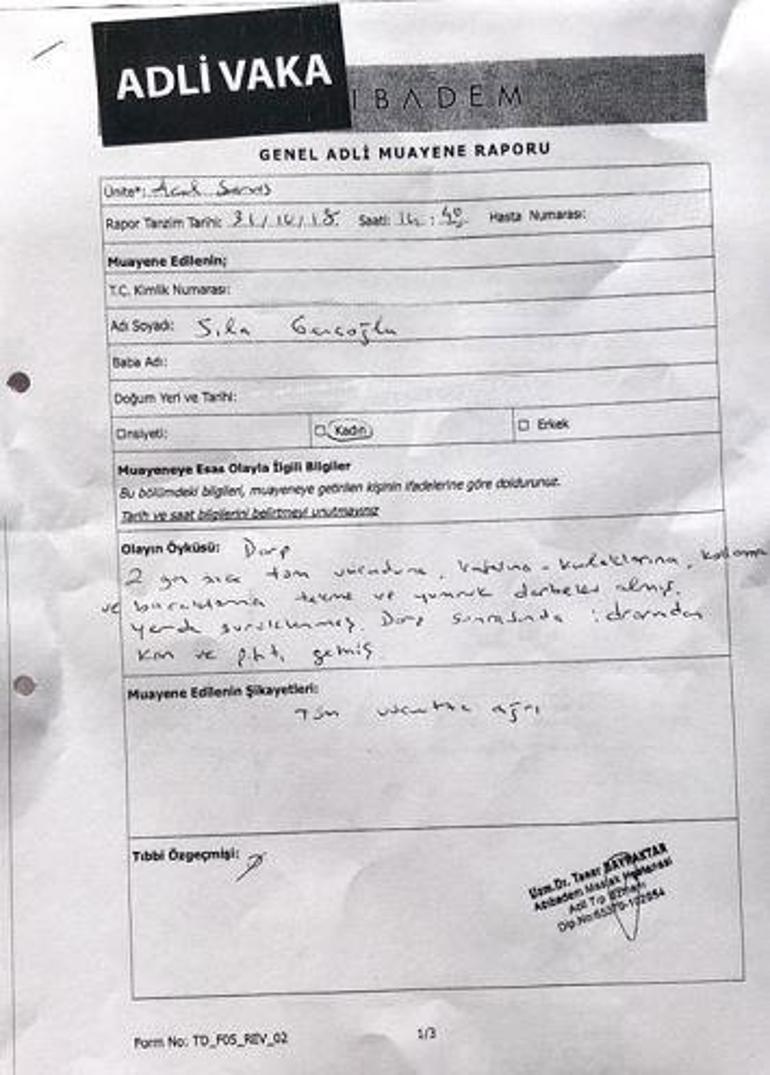 ADLİ VAKA
IBADEM
GENEL ADLİ MUAYENE RAPORU
Ünite*: Acil Servis
Rapor Tanzim Tarihi: 31/10/18 Saati: Hasta Numarası:
Muayene Edilenin;
T.C. Kimlik Numarası:
Adı Soyadı: Sıla Gençoğlu
Baba Adı:
Doğum Yeri ve Tarihi:
Cinsiyeti: Kadın Erkek
Muayeneye Esas Olayla İlgili Bilgiler
Bu bölümdeki bilgileri, muayeneye getirilen kişinin ifadelerine göre doldurunuz.
Tarih ve saat bilgilerini belirtmeyi unutmayınız
Olayın Öyküsü: Darp
2 gün önce tüm vücuduna, kafasına - kulaklarına,
ve bacaklarına tekme ve yumruk darbeleri almış.
yerde sürüklenmiş. Darp sonrasında idrarından
kan ve pıhtı gelmiş
Muayene Edilenin Şikayetleri:
Tüm vücutta ağrı
Tıbbi Özgeçmişi:
Uzm.Dr. Taner BAYRAKTAR
Acıbadem Maslak Hastanesi
Acil Tıp Uzmanı
Form No: TD_F05_REV_02
1/3